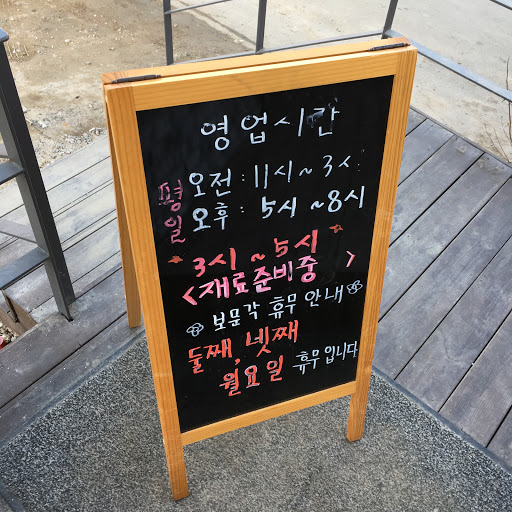 영업시간
평일
오전 : 11시 ~ 3시
오후 : 5시 ~ 8시
3시 ~ 5시
<재료준비중>
보문각 휴무 안내
둘째, 넷째
월요일 휴무 입니다